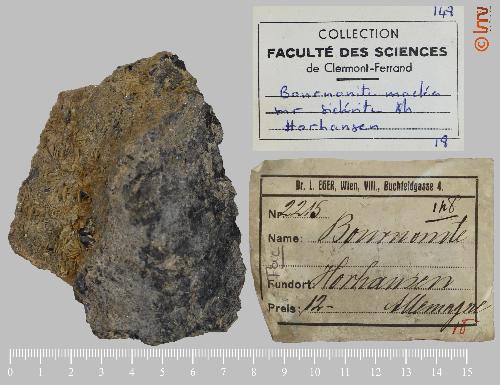 148
COLLECTION
FACULTÉ DES SCIENCES
de Clermont-Ferrand
Bournonite maclée
sur sidérite Rh
Horhausen
18
Dr. L. EGER, Wien, VIII., Buchfeldgasse 4.
Nr. 2215
148
Name: Bournonite
Fundort: Horhausen
Preis: 12- Allemagne
18
0 1 2 3 4 5 6 7 8 9 10 11 12 13 14 15
© lmv